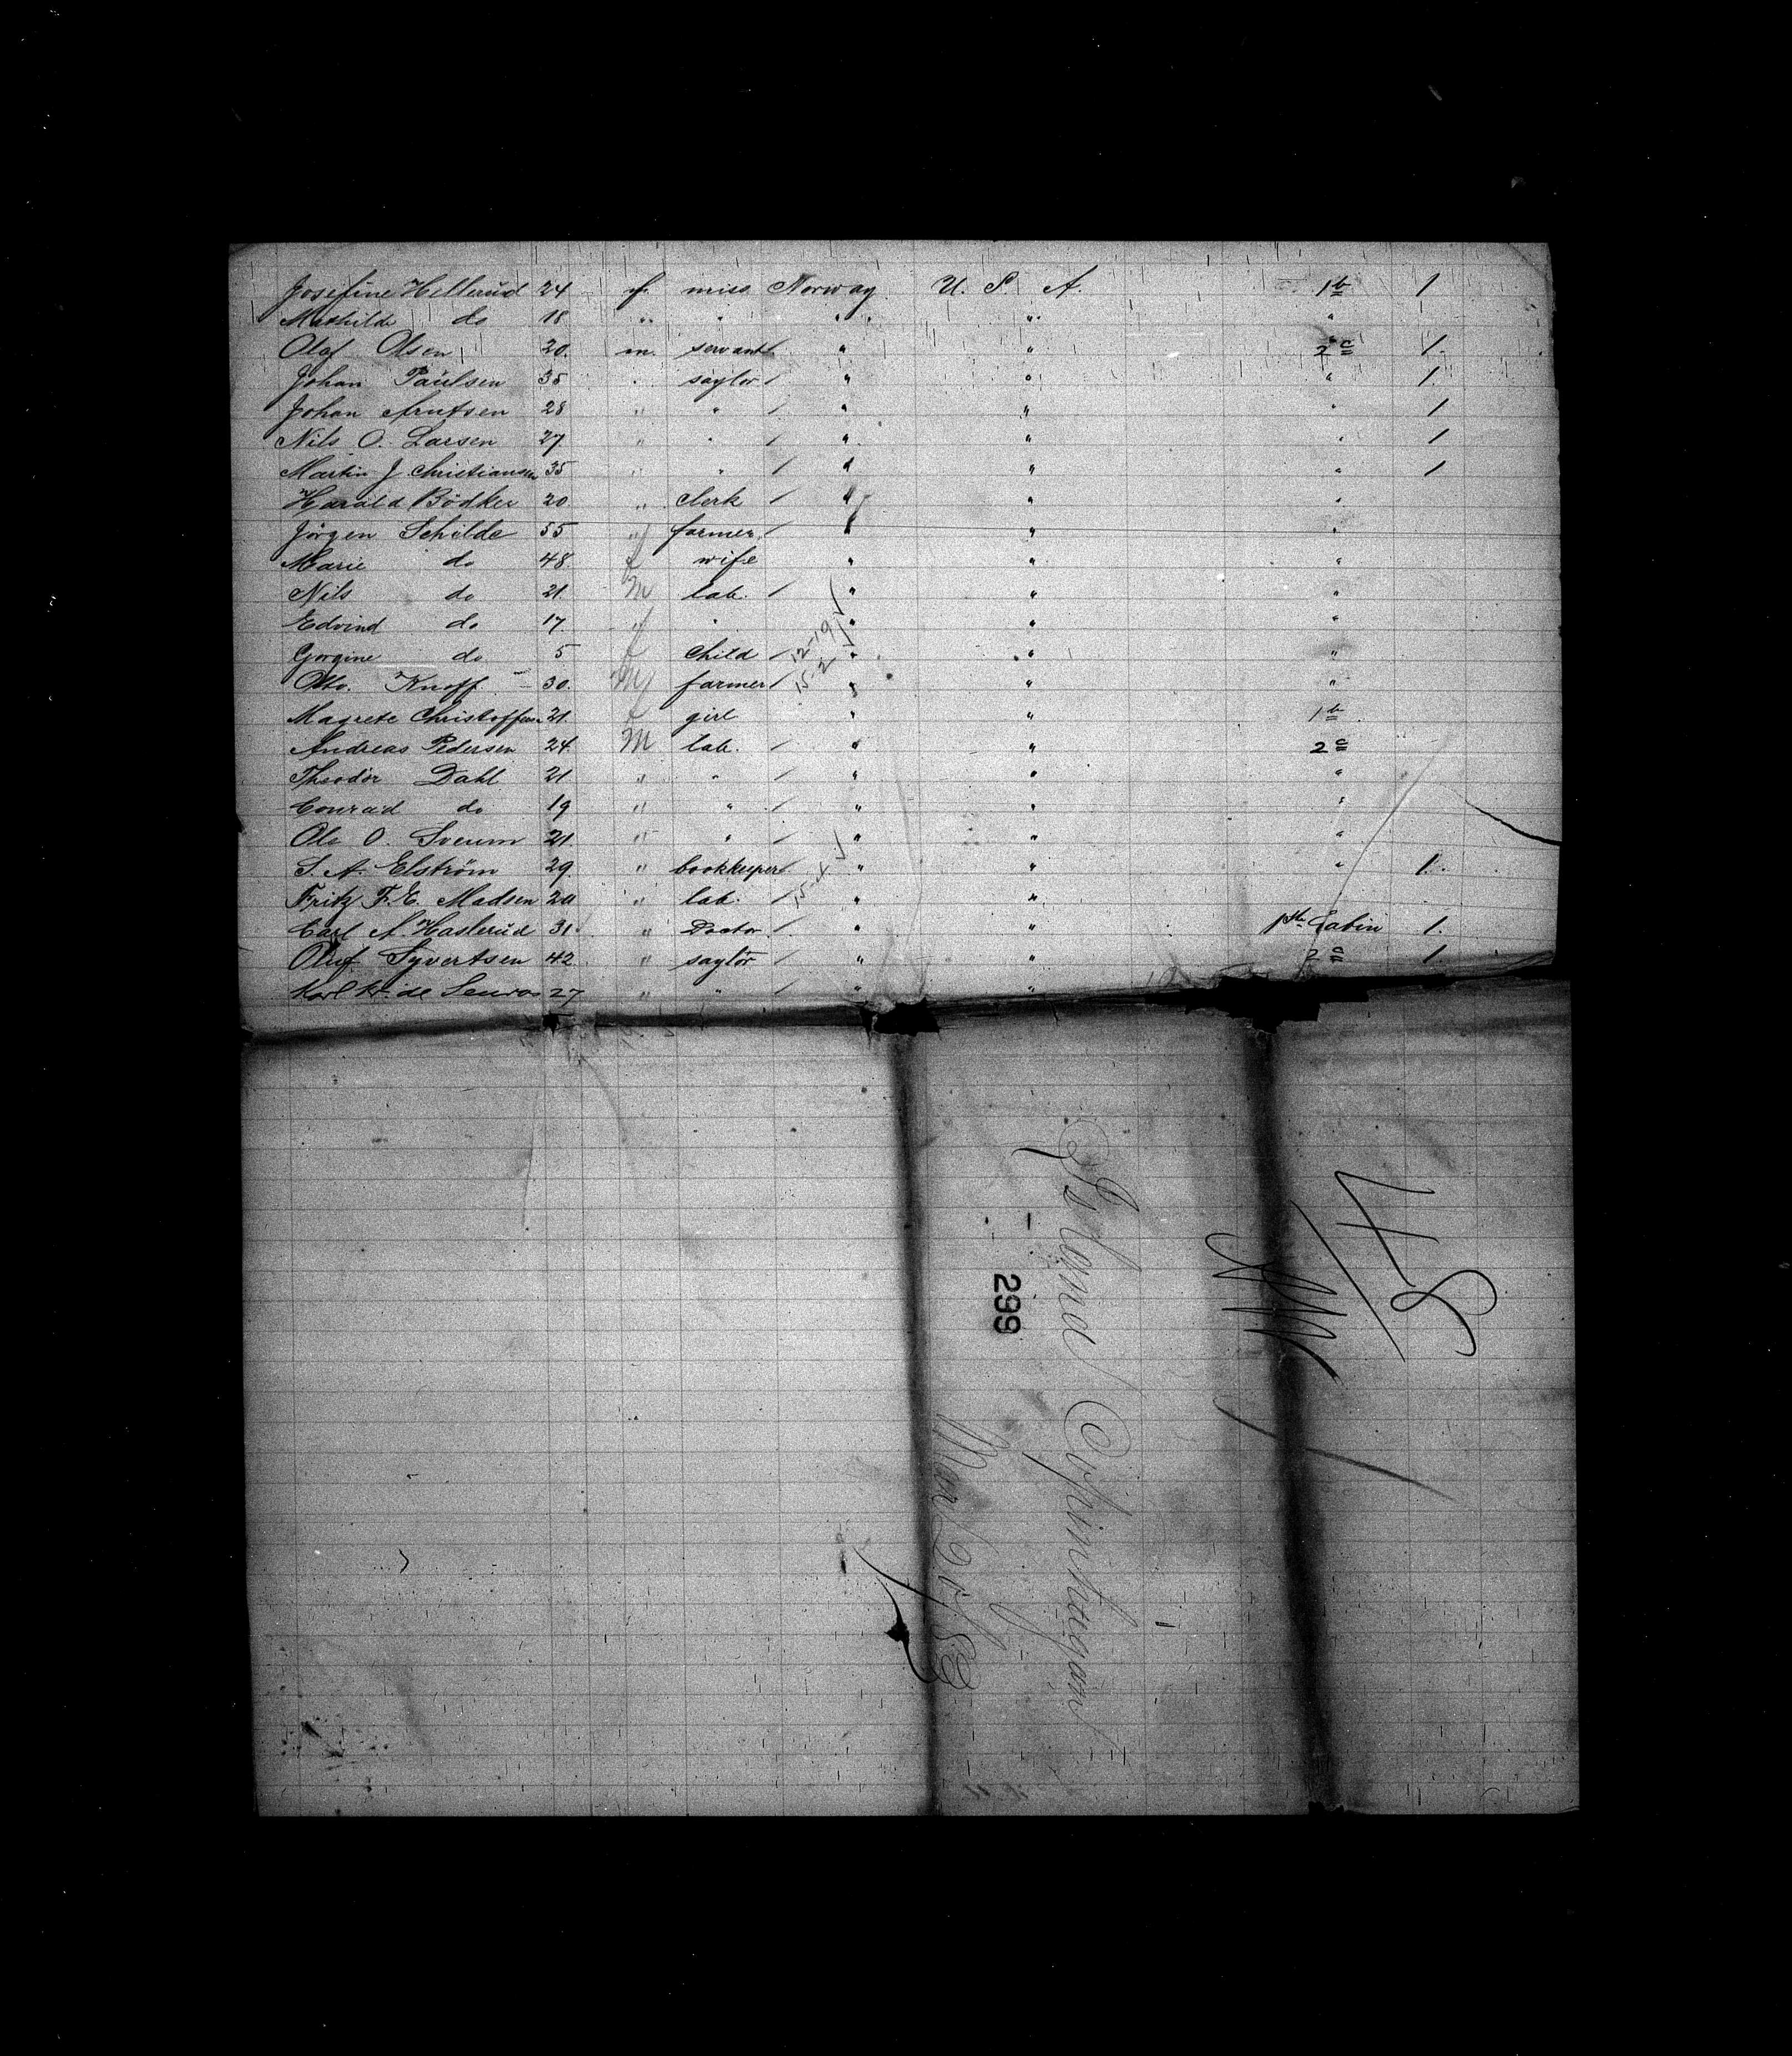 Josefine Hellerud 24 f. miss Norway U. S. A. 1 b 1
Mathilde do 18 " " " " "
Olaf Olsen 20. m. servant " " 2 c 1.
Johan Paulsen 35 " saylor " " " 1.
Johan Arntsen 28 " " " " " 1
Nils O. Larsen 27 " " " " " 1
Martin J. Christiansen 35 " " " " " 1
Harald Bödker 20 " clerk " " "
Jörgen Schilde 55 " farmer " " "
Marie do 48 f wife " " "
Nils do 21. M lab. " " "
Edvind do 17. " " " " "
Gorgine do 5 f child 12-19 " " "
Otto Knoff 30. M farmer 15-2 " " "
Magrete Christoffersen 21. f girl " " 1 b
Andreas Pedersen 24 M lab. " " 2 c
Theodor Dahl 21 " " " " "
Conrad do 19 " " " " "
Ole O. Sveum 21. " " " " "
S. A. Elström 29. " bookkeeper " " " 1.
Fritz F. E. Madsen 20 " lab. 15-4 " "
Carl A. Haslerud 31. " Doctor " " 1ste Cabin 1.
Oluf Syvertsen 42 " saylor " " 2 c 1
Karl Kr. de Seuvos 27 " " " "
48
Island Copinhagen
299
Mar 20/83